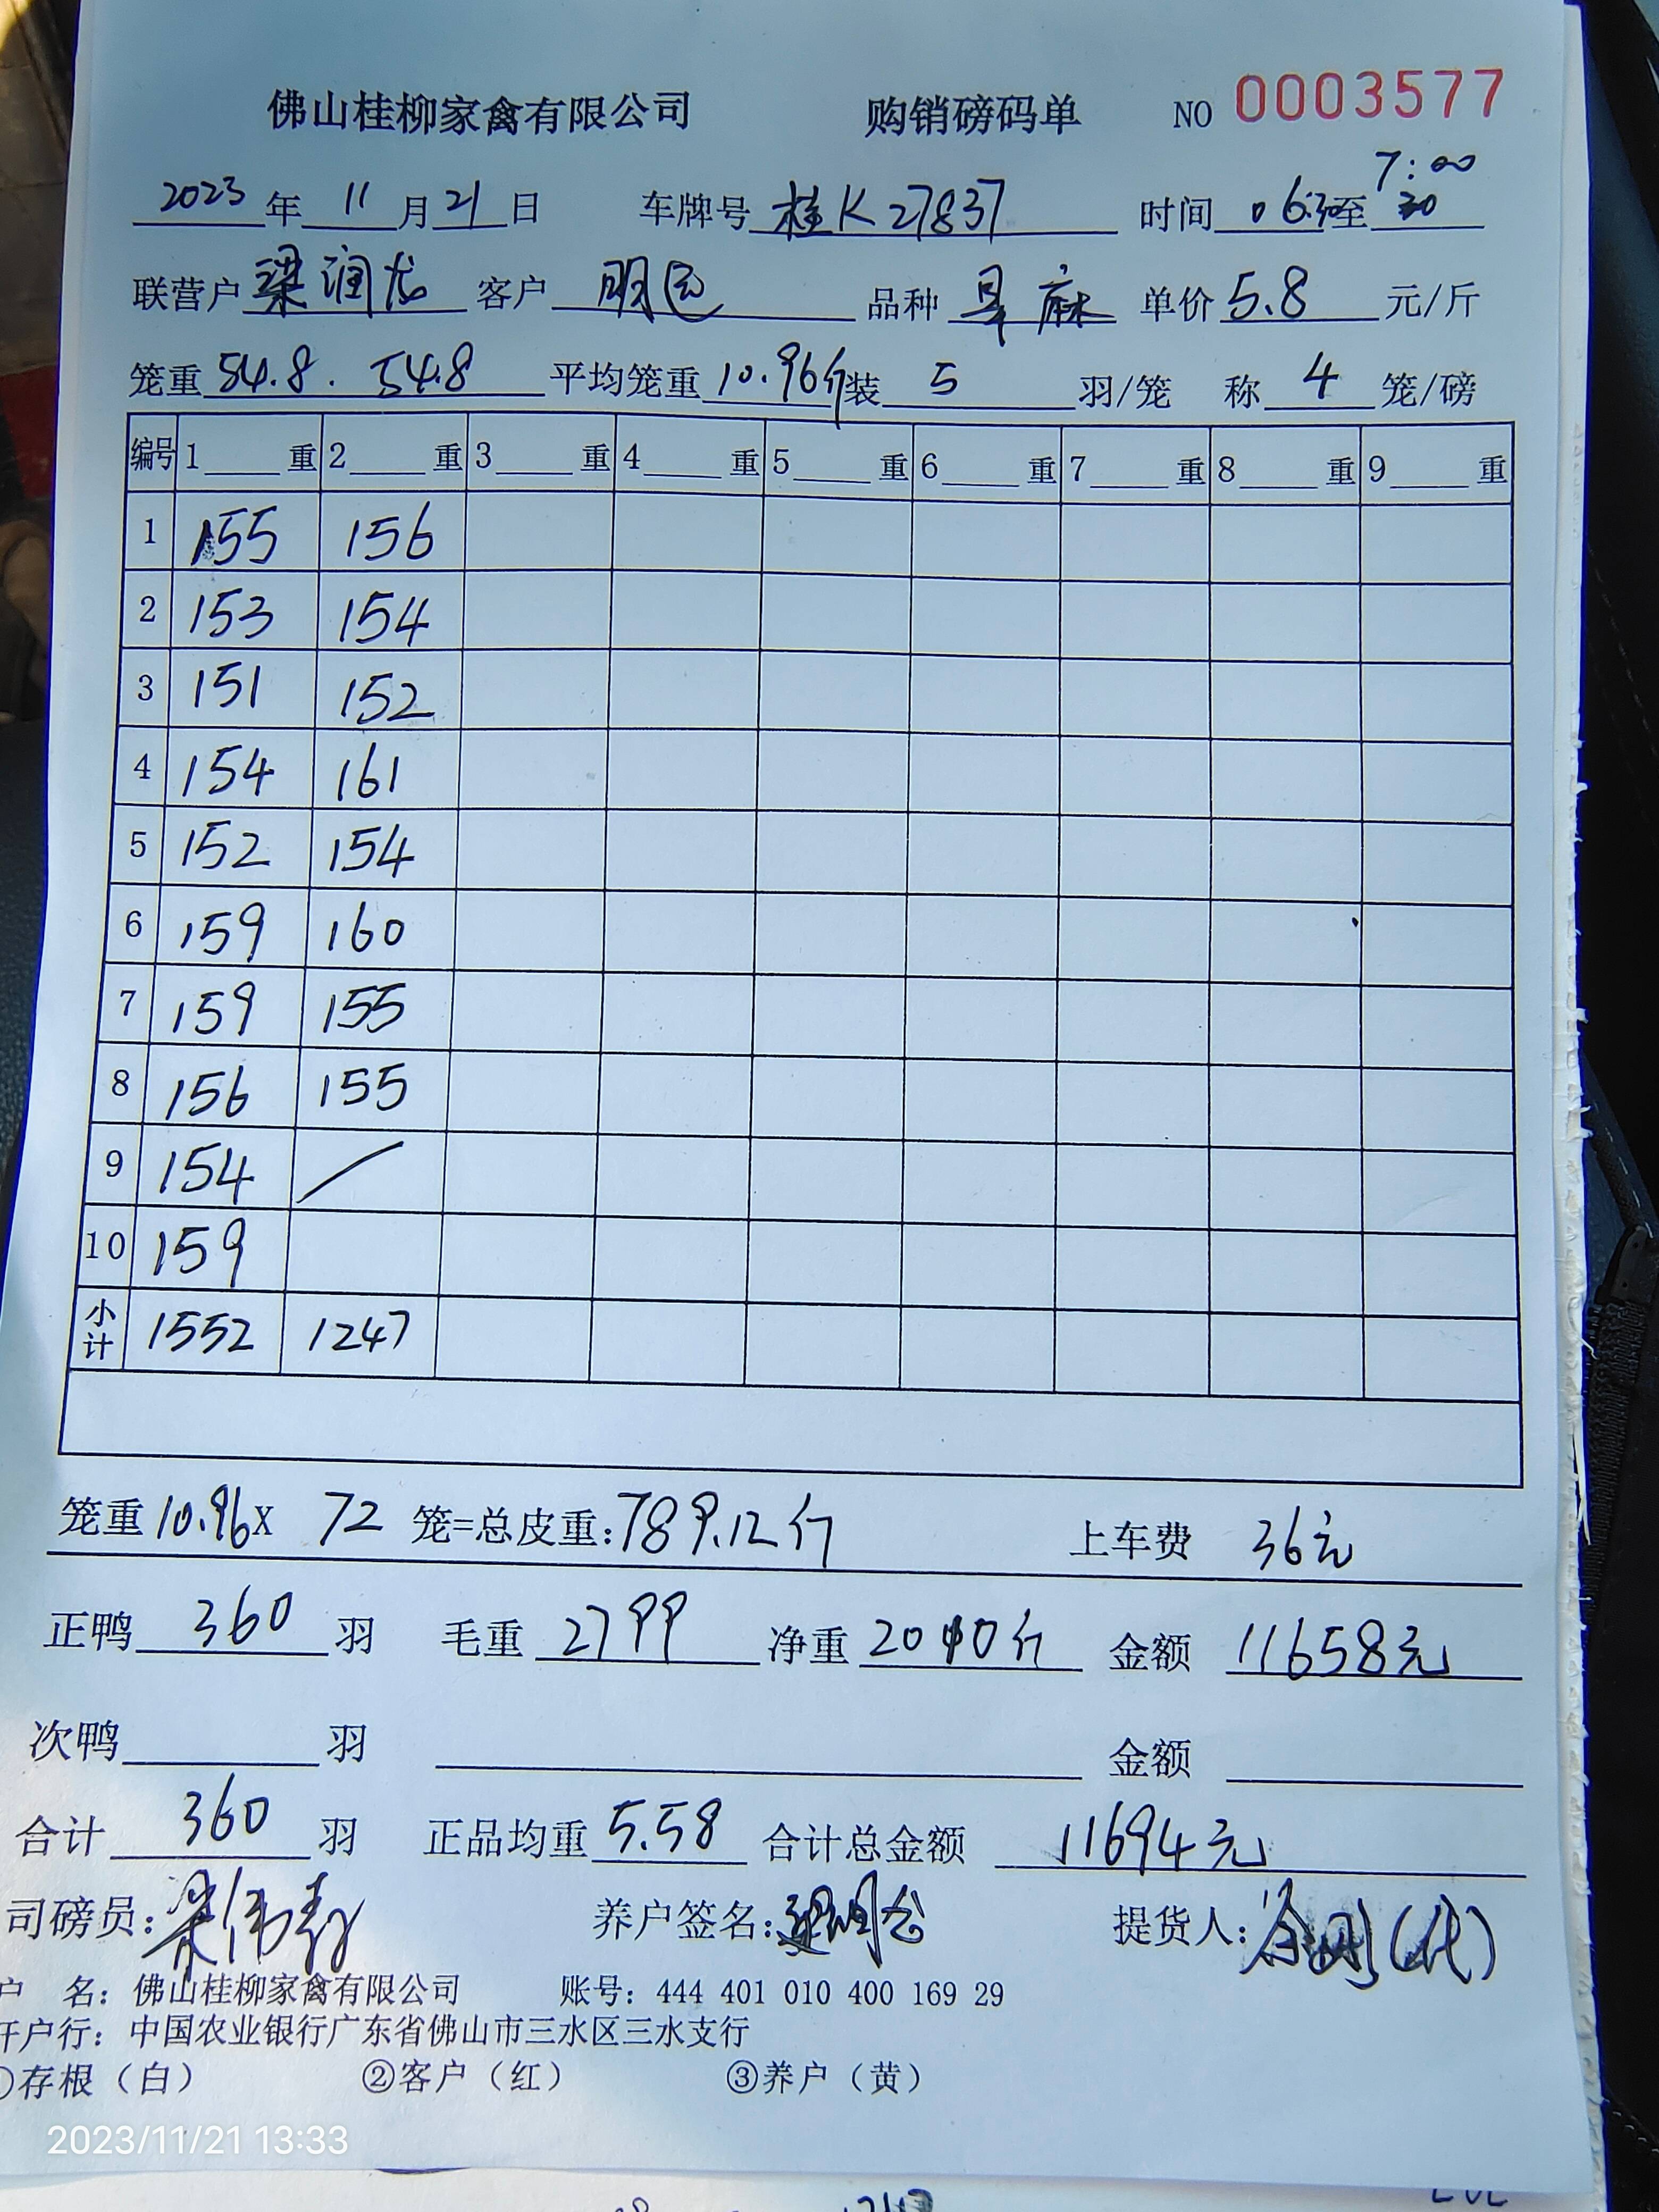 佛山桂柳家禽有限公司 购销磅码单 NO 0003577
7:00
2023年 11月21日 车牌号 桂K27837 时间 06:30至
联营户 梁润龙 客户 品种 麻 单价 5.8 元/斤
笼重 54.8. 54.8 平均笼重 10.96斤 装 5 羽/笼 称 4 笼/磅
编号 1 重 2 重 3 重 4 重 5 重 6 重 7 重 8 重 9 重
1 155 156
2 153 154
3 151 152
4 154 161
5 152 154
6 159 160
7 159 155
8 156 155
9 154 /
10 159
小计 1552 1247
笼重10.96X 72 笼=总皮重:789.12斤 上车费 36元
正鸭 360 羽 毛重 2799 净重 2010斤 金额 11658元
次鸭 羽 金额
合计 360 羽 正品均重 5.58 合计总金额 11694元
司磅员: 养户签名: 提货人: (代)
户 名: 佛山桂柳家禽有限公司 账号: 444 401 010 400 169 29
开户行: 中国农业银行广东省佛山市三水区三水支行
①存根（白） ②客户（红） ③养户（黄）
2023/11/21 13:33